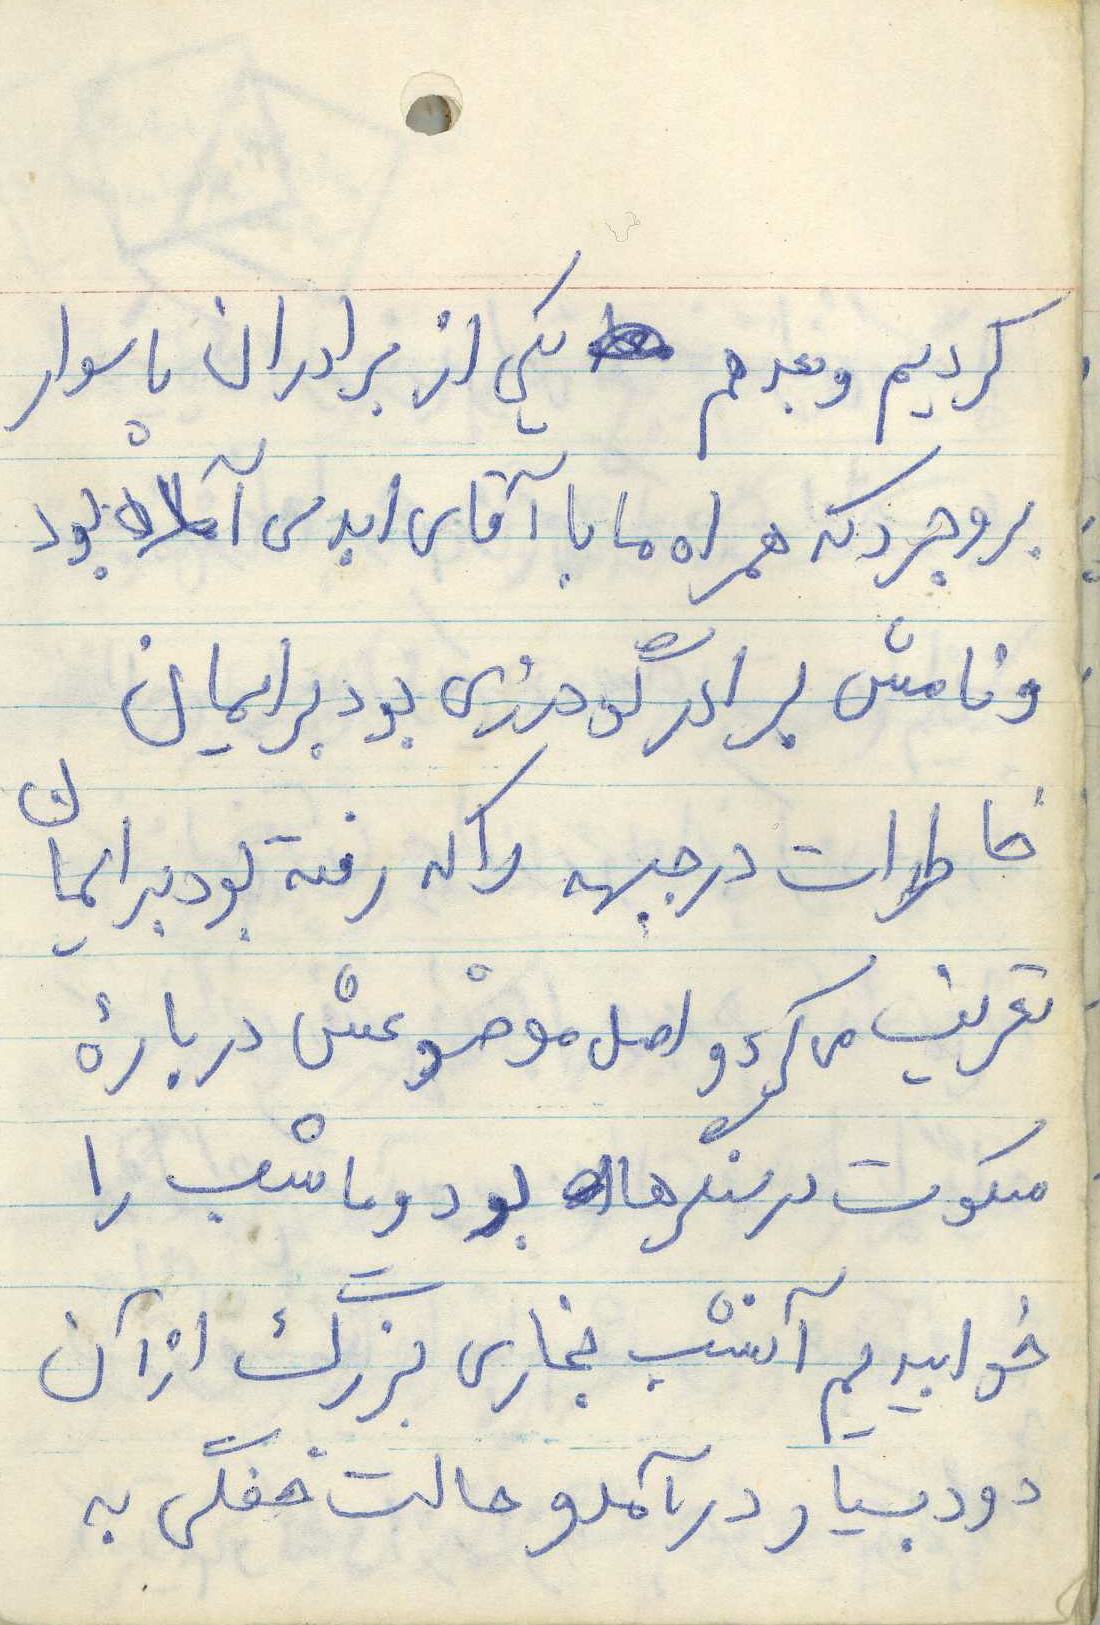 کردیم و بعد هم یکی از برادران پاسدار
بروجرد که همراه ما با آقای ابدی آمده بود
و نامش برادر گودرزی بود برایمان
خاطرات در جبهه را که رفته بود برایمان
تعریف می کرد و اصل موضوعش دربارهٔ
سکوت در سنگرها بود و ما شب را
خوابیدیم آنشب بخاری بزرگ از آن
دود بسیار درآمد و حالت خفگی به